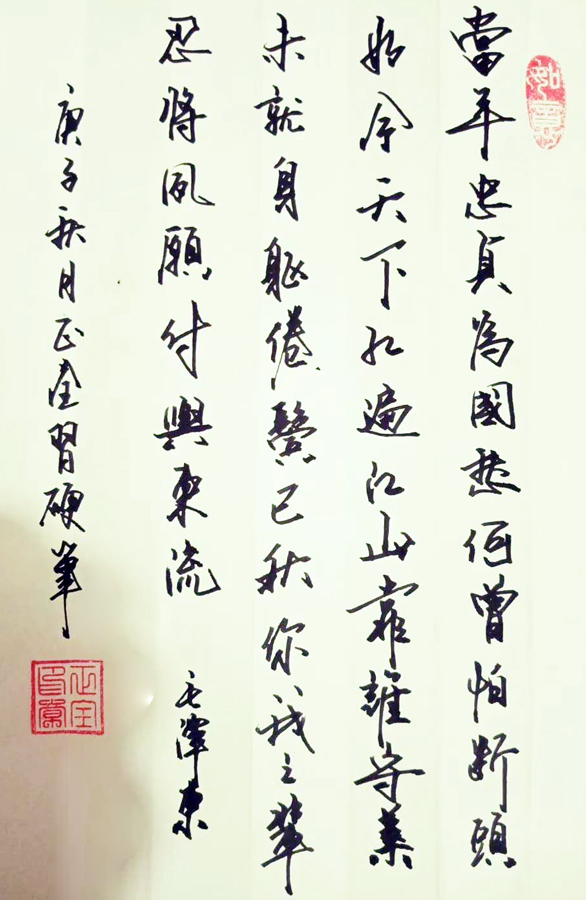 如意
當年忠貞為國愁何曾怕斷頭
如今天下红遍江山靠誰守業
未就身軀倦鬢已秋你我之輩
忍將夙願付與東流 毛澤東
庚子秋月正全習硬筆
正全印